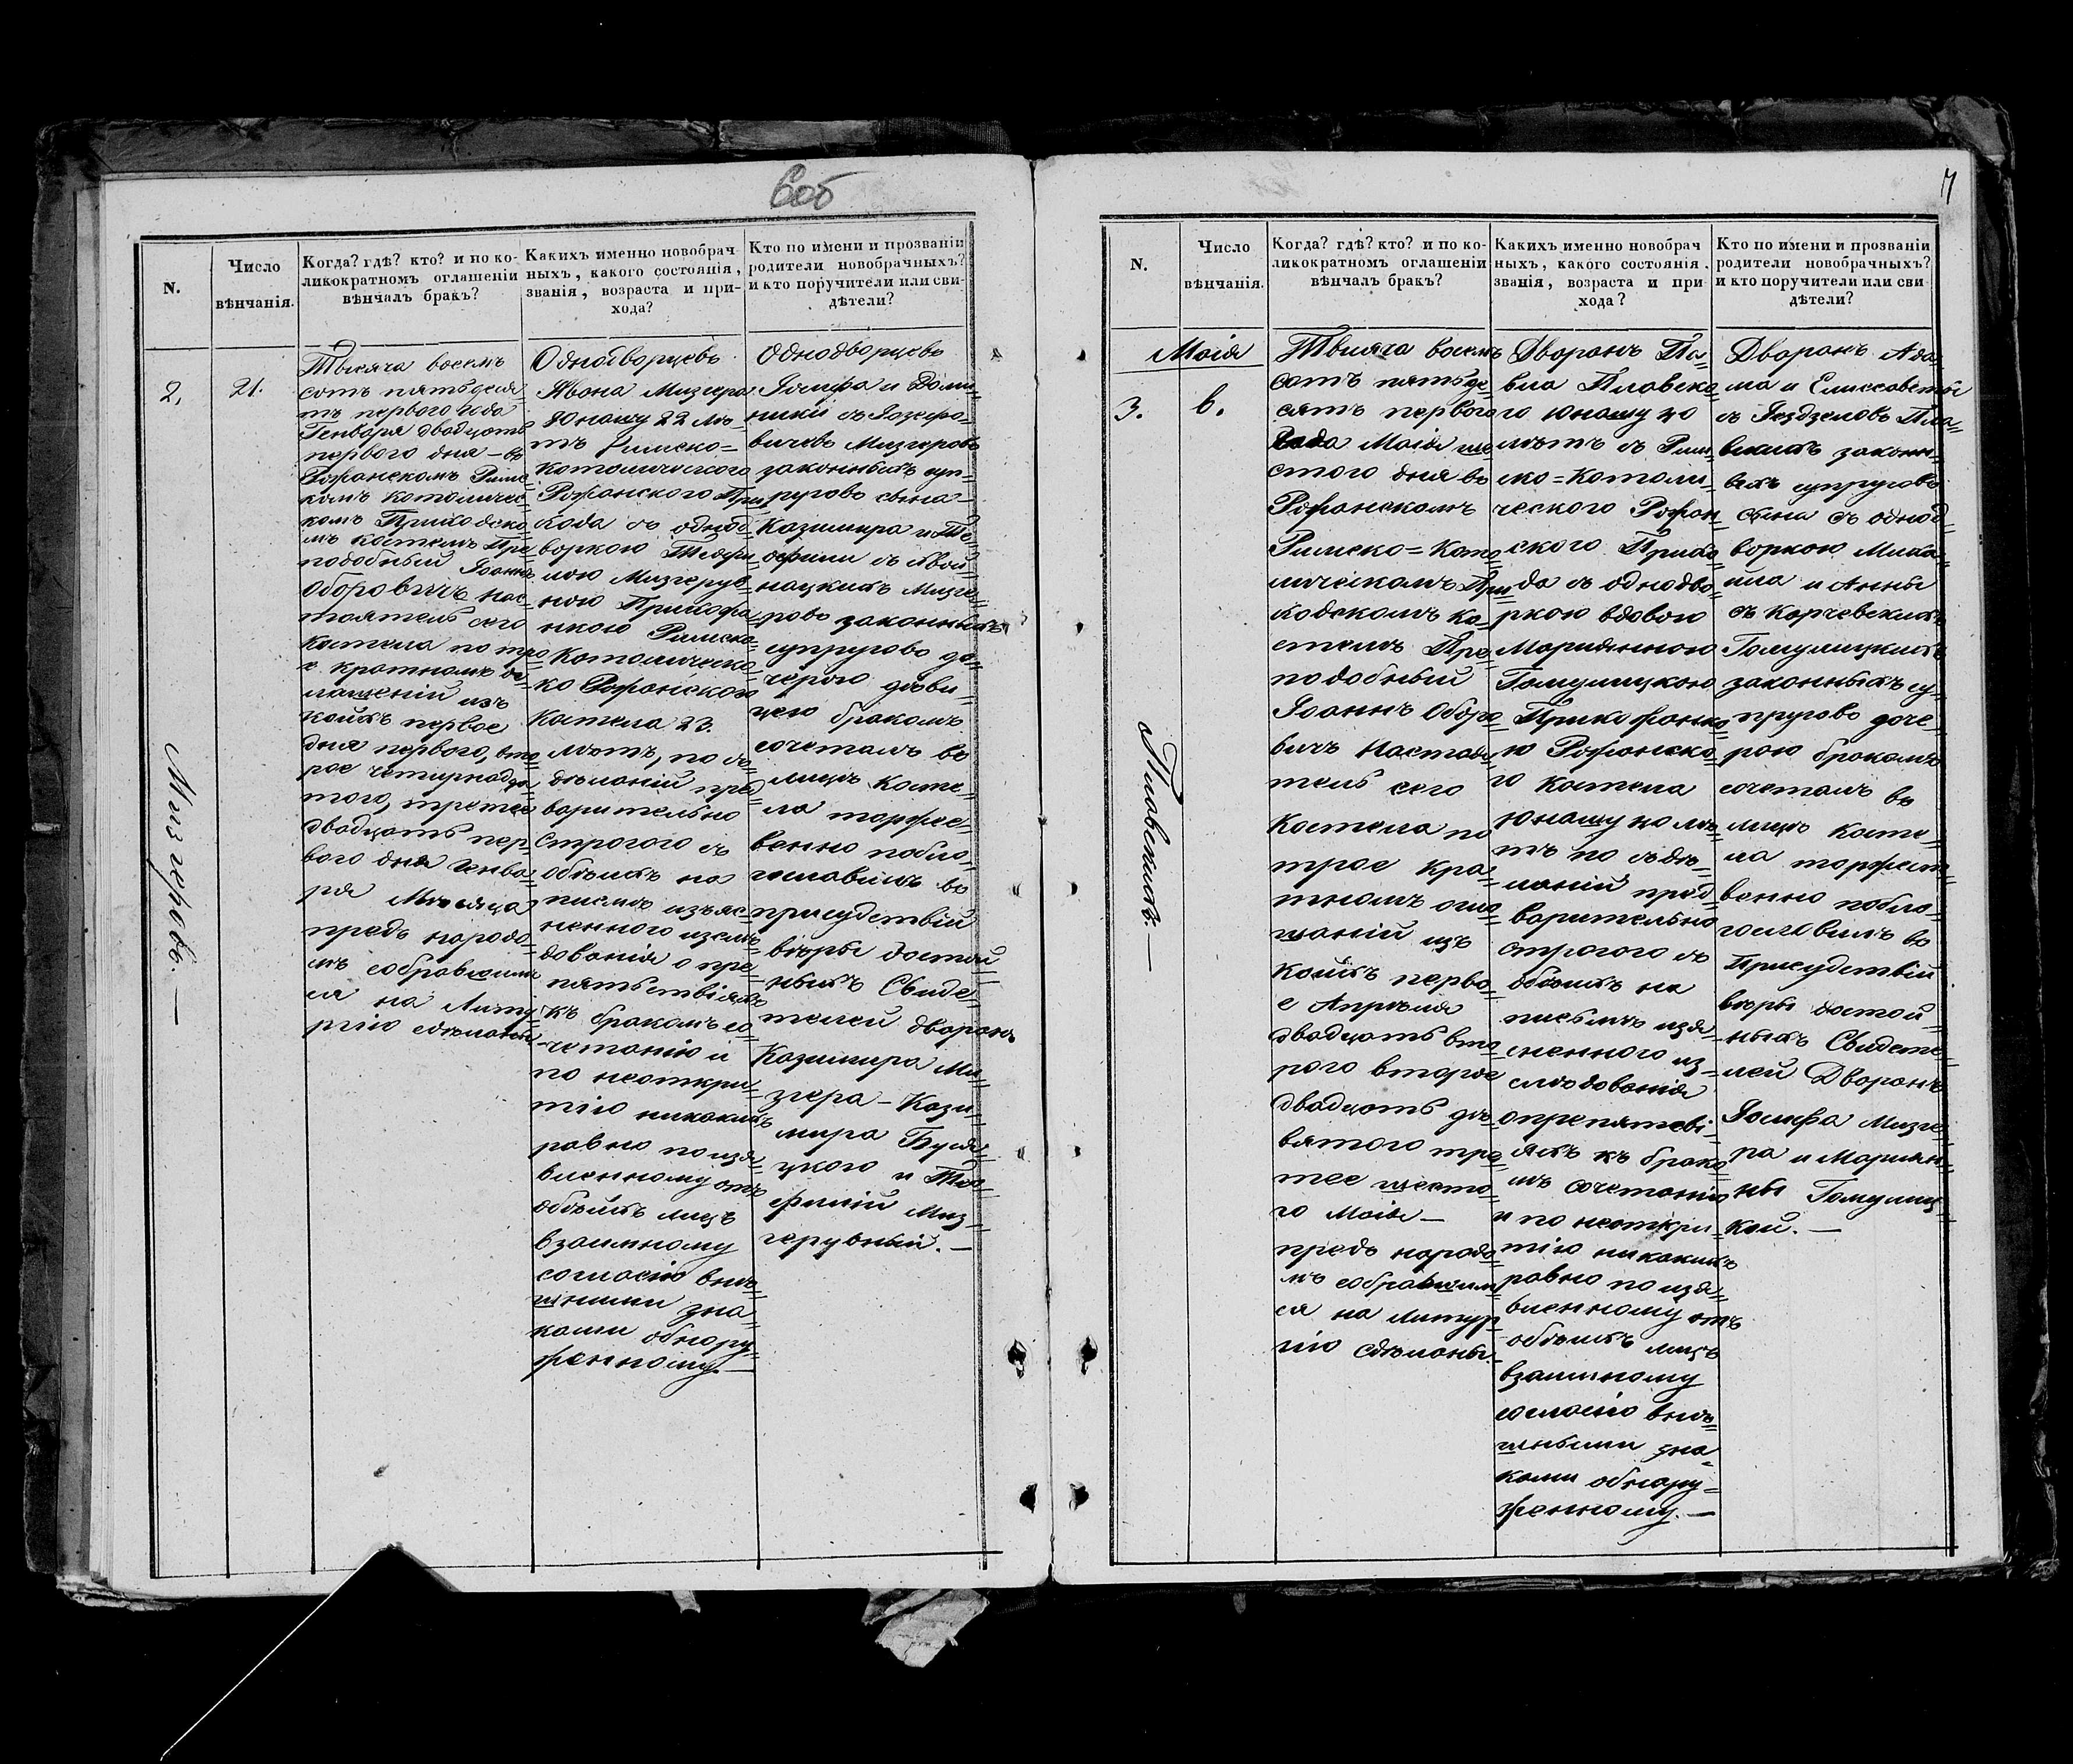 6об
N.
Число
вѣнчанія.
Когда? гдѣ? кто? и по ко-
ликократномъ оглашеніи
вѣнчалъ бракъ?
Какихъ именно новобрач
ныхъ, какого состоянія,
званія, возраста и при-
хода?
Кто по имени и прозваніи
родители новобрачныхъ?
и кто поручители или сви-
дѣтели?
2,
21.
Мизгеровъ. —
Тысяча восемъ
сотъ пятьдеся-
тъ перваго года
Генваря двадцать
перваго дня – въ
Рожанскомъ Римс-
комъ Католичес-
комъ Приходско-
мъ костелѣ Пре-
подобный Іоаннъ
Оборовичъ нас-
тоятель сего
костела по тро-
е кратномъ ог-
лашеніи изъ
коихъ первое
дня перваго, вто-
рое четырнадца-
того, третее
двадцать пер-
вого дня Генва-
ря Месяца
предъ народо-
мъ собравшим-
ся на Литу-
ргію сдѣланы
Однодворцевъ
Ивана Мизгера
Юношу 22 лѣ-
тъ Римско=
Католического
Рожанского При-
хода съ однод-
воркою Теофи-
лою Мизгерув-
ною Прихожа-
нкою Римско-
Католическо-
го Рожанского
Костела 23.
лѣтъ, по съ-
дѣланій пред-
варительно
строгого съ
обѣихъ на
письмѣ изъяс-
ненного изслѣ-
дованія о пре-
пятьствіяхъ
къ бракомъ со-
четанію и
по неоткры-
тію никакихъ
равно по изъя-
вленному отъ
обѣихъ лицъ
взаимному
согласію внѣ-
шними зна-
ками обнару-
женному. —
Однодворцевъ
Іосифа и Доми-
ники съ Юзефо-
вичевъ Мизгеровъ
законныхъ суп-
руговъ сына —
Казимира и Те-
офили съ Авой-
нацкихъ Мизге-
ровъ законныхъ
супруговъ до-
черою дѣви-
цею бракомъ
сочеталъ въ
лицѣ Косте-
ла торжес-
венно побла-
гославилъ въ
присудствій
вѣры достой-
ныхъ Свиде-
телей дворянъ
Казимира Ми-
згера – Кази-
мира
и Тео-
филій Миз-
герувный. —
7
N.
Число
вѣнчанія.
Когда? гдѣ? кто? и по ко-
ликократномъ оглашеніи
вѣнчалъ бракъ?
Какихъ именно новобрач
ныхъ, какого состоянія,
званія, возраста и при
хода?
Кто по имени и прозваніи
родители новобрачныхъ?
и кто поручители или сви
дѣтели?
Маія
3.
6.
Плавскихъ. —
Тысяча восемъ
сотъ пятьде-
сятъ первого
года Маія ше-
стого дня въ
Рожанскомъ
Римско=Като-
лическомъ При-
ходскомъ ко-
стелѣ Пре-
подобный
Іоаннъ Оборо-
вичъ Настоя-
тель сего
Костела по
трое кра-
тномъ огла-
шаній изъ
коихъ перво-
е Апрѣля
двадцать вто-
рого второе
двадцать дѣ-
вятого тре-
тее шесто-
го Маія —
предъ народо-
мъ собравшим-
ся на литур-
гію сдѣланы.
Дворянъ Па-
вла Плавско-
го юношу 40
лѣтъ съ Рим-
ско=Католи-
ческого Рожан-
ского Прихо-
да съ однодво-
ркою вдовою
Марианною
Гомулицкою
Прихожанко-
ю Рожанско-
го Костела
юношу 40 лѣ-
тъ по съдѣ-
ланій пред-
варительно
строгого съ
обѣихъ на
письмѣ изъя-
сненного из-
слѣдованія
опрепятсві-
яхъ къ брако-
мъ сочетанію
и по неоткры-
тію никакихъ
равно по изъя-
вленному отъ
обѣихъ лицъ
взаимному
согласію внѣ-
шными зна-
ками обнару-
женному. —
Дворянъ Ада-
ма и Елисаветы
съ Пла-
вскихъ закон-
ыхъ супруговъ
сына съ однод-
воркою Миха-
ила и Анны
съ Корчевскихъ
Гомулицкихъ
законныхъ су-
пруговъ доче-
рою бракомъ
сочеталъ въ
лицѣ косте-
ла торжест-
венно побла-
гословилъ въ
Присудствій
вѣры достой-
ныхъ Свидете-
лей Дворянъ
Іосифа Мизге-
ра и Мариан-
ны Гомулиц-
кой. —